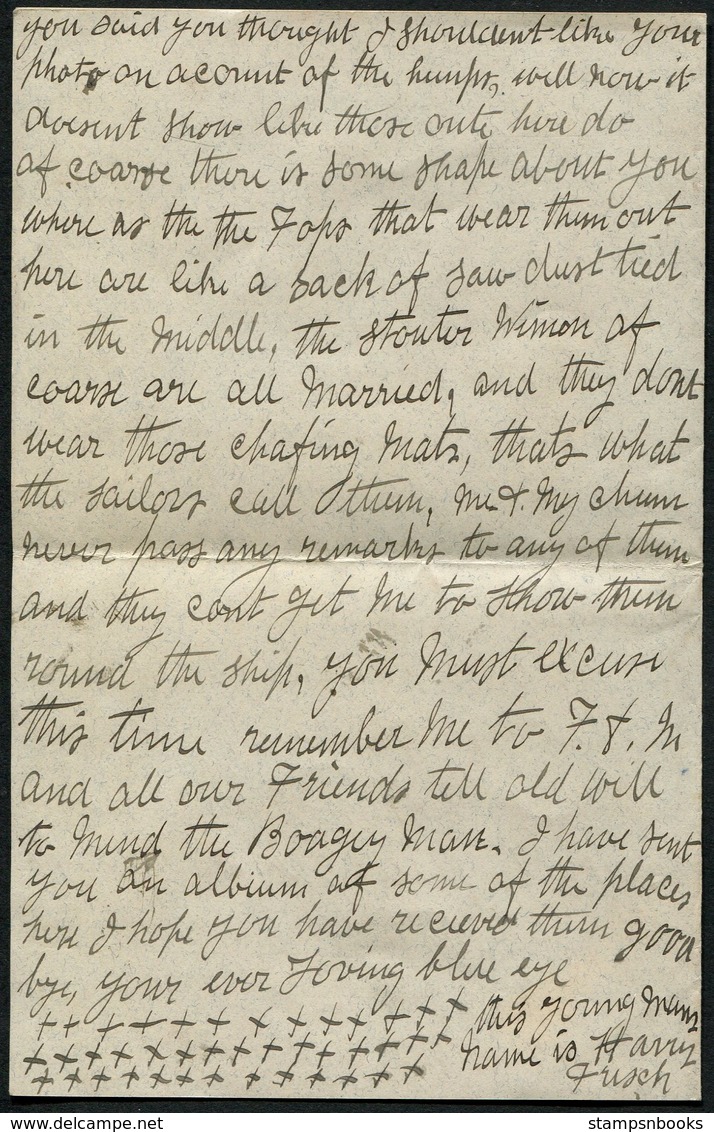 you said you thought I shouldent like your
photo on acount of the humps, well now it
doesent show like those oute here do
of coarse there is some shape about you
where as the the Fops that wear them out
here are like a sack of saw dust tied
in the Middle, the stouter Wimon of
coarse are all Married, and they dont
wear those chafing Mats, thats what
the sailors call them, me & My chum
never pass any remarks to any of them
and they cant get Me to show them
round the ship, you Must excuse
this time remember Me to F. & M
and all our Friends tell old Will
to Mind the Boagey Man. I have sent
you an albium of some of the places
here I hope you have recieved them good
bye, your ever Loving blue eye
+ + + + + + x + + + + + + this young Mans
x x x x x x x x x x x x x x name is Harry
x x x x x x x x x x x x Frisch
stampsnbooks